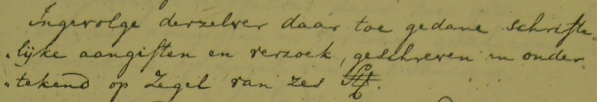 Ingevolge derzelver daar toe gedane schrifte-
lijke aangiften en verzoek, geschreven en onder-
tekend op Zegel van zes